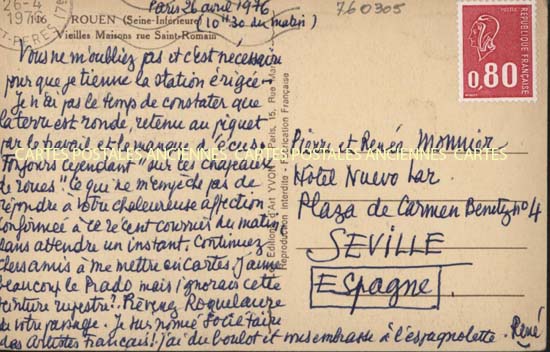 Paris 26 avril 1976
(10h30 du matin)
760305
26-4
1976
ROUEN (Seine-Inférieure)
Vieilles Maisons rue Saint-Romain
Vous ne m'oubliez pas et c'est necessaire
pour que je tienne la station érigée
Je n'ai pas le temps de constater que
la terre est ronde, retenu au piquet
par le travail
Toujours cependant "sur ces chapeaux
de roues". Ce qui ne m'empêche pas de
répondre à votre chaleureuse affection
confirmée à ce récent courrier du matin
sans attendre un instant. Continuez
chers amis à me mettre en cartes. J'aime
beaucoup le Prado mais j'ignorais cette
peinture rupestre! Prévenez Roquelaure
de votre passage. Je suis nommé Sociétaire
des Artistes Français! j'ai du boulot et vous embrasse à l'espagnolette. René
Editions d'Art YVON, Paris, 15, Rue
Reproduction Interdite - Fabrication Française
REPUBLIQUE FRANÇAISE
0,80
Pierre et Renée Monnier
Hotel Nuevo Lar
Plaza de Carmen Benitez nº 4
SEVILLE
Espagne
CARTES POSTALES ANCIENNES CARTES POSTALES ANCIENNES